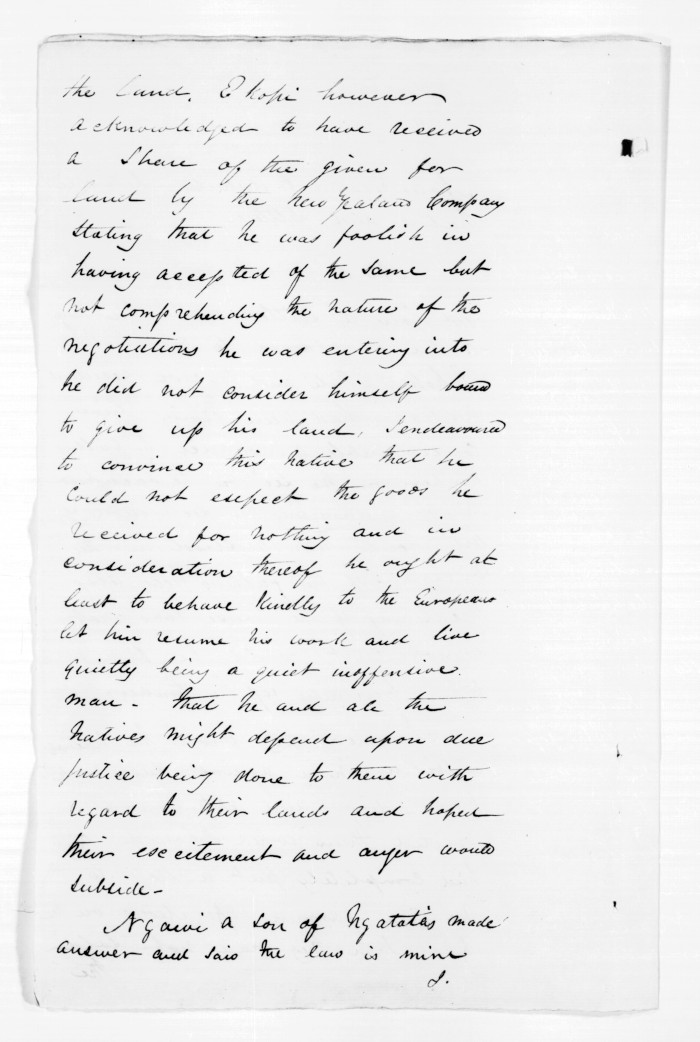 the land. E Kopi however
acknowledged to have received
a Share of the given for
land by the New Zealand Company
stating that he was foolish in
having accepted of the same but
not comprehending the nature of the
negotiations he was entering into
he did not consider himself bound
to give up his land, I endeavoured
to convince this Native that he
could not expect the goods he
received for nothing and in
consideration thereof he ought at
least to behave kindly to the Europeans
let him resume his work and live
quietly being a quiet inoffensive
man - that he and all the
Natives might depend upon due
justice being done to them with
regard to their lands and hoped
their excitement and anger would
subside -
Ngawi a son of Ngatatas made
answer and said the law is mine
I.